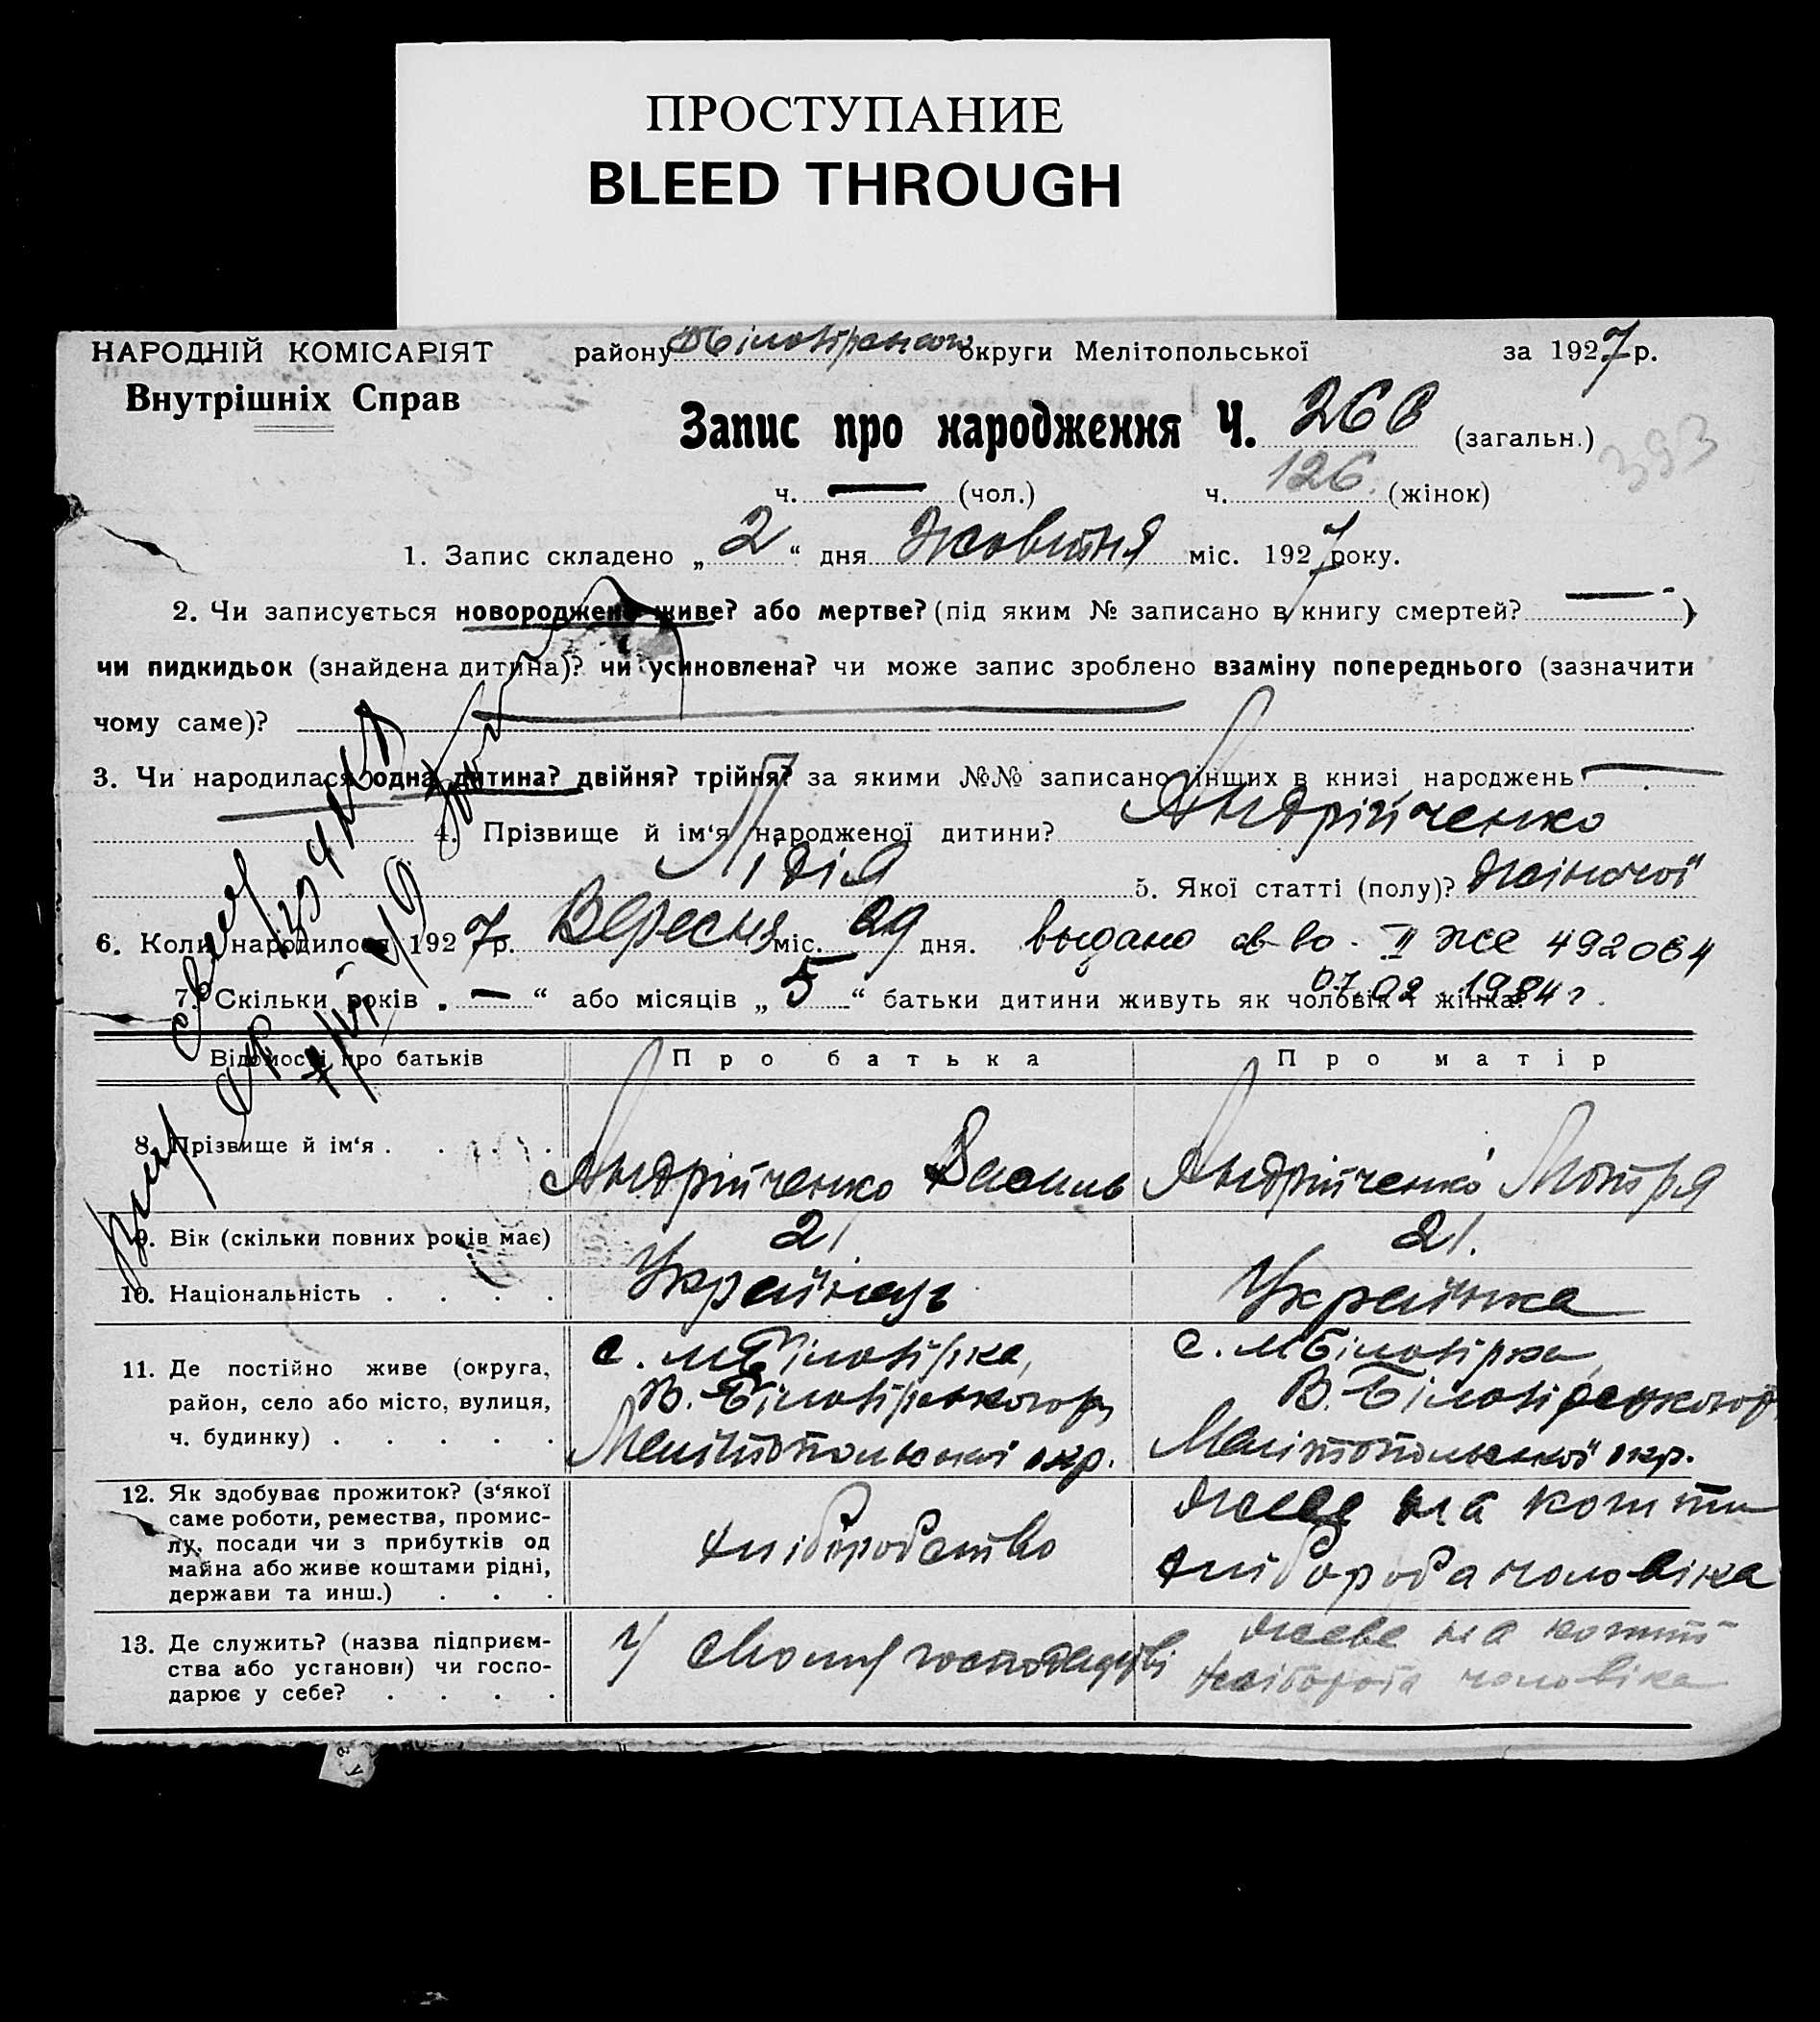 ПРОСТУПАНИЕ
BLEED THROUGH
НАРОДНІЙ КОМІСАРІЯТ
Внутрішніх Справ
району округи Мелітопольської за 1927 р.
Запис про народження Ч. 266 (загальн.)
393
ч. — (чол.) ч. 126 (жінок)
1. Запис складено „ 2 “ дня Жовтня міс. 1927 року.
2. Чи записується новороджене живе? або мертве? (під яким № записано в книгу смертей? — )
чи пидкидьок (знайдена дитина)? чи усиновлена? чи може запис зроблено взаміну попереднього (зазначити
чому саме)?
3. Чи народилася одна дитина? двійня? трійня? за якими №№ записано інших в книзі народжень? —
4. Прізвище й ім‘я народженої дитини? Андрійченко
Лідія 5. Якої статті (полу)? жіночої
6. Коли народилося 1927 р. Вересня міс. 29 дня. выдано св-во - II ЖС 492064
07.02.1984 г.
7. Скільки років „ — “ або місяців „ 5 “ батьки дитини живуть як чоловік і жінка?
Відомості про батьків Про батька Про матір
8. Прізвище й ім‘я . . . . Андрійченко Василь Андрійченко Мотря
9. Вік (скільки повних років має) 21 21.
10. Національність . . . . Українець Українка
11. Де постійно живе (округа, с. М Білозірка, с. М Білозірка,
район, село або місто, вулиця, В. Білозірського р В. Білозірського р
ч. будинку) . . . . . Мелітопольської окр. Мелітопольської окр.
12. Як здобуває прожиток? (з‘якої
саме роботи, ремества, промис-
лу, посади чи з прибутків од
майна або живе коштами рідні,
держави та инш.) . . .
хліборобство
живе на кошти
хлібороба чоловіка
13. Де служить? (назва підприєм-
ства або установи) чи госпо-
дарює у себе? . . . .
У своїму господарстві
живе на кошти
хлібороба чоловіка